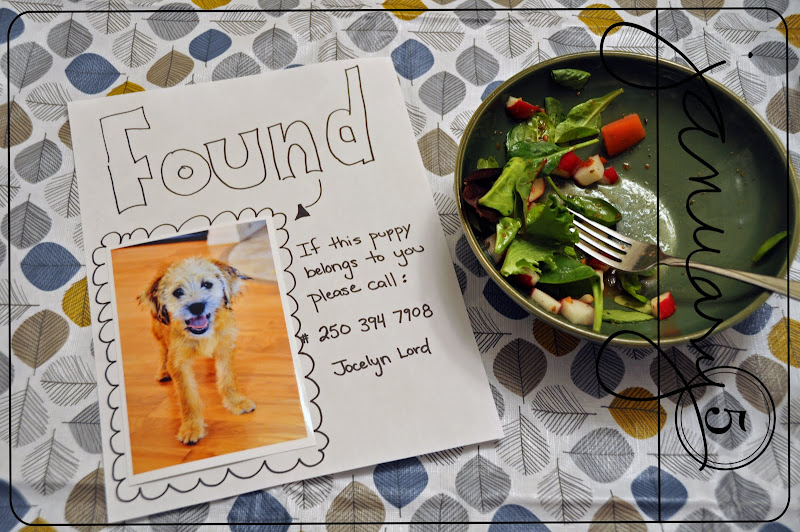 Found
If this puppy
belongs to you
please call:
# 250 394 7908
Jocelyn Lord
January
5